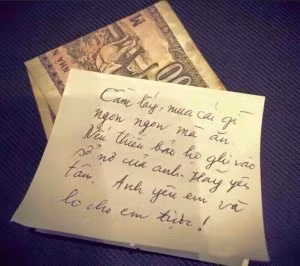 NHÀ N
00
Cầm lấy, mua cái gì
ngon ngon mà ăn
Nếu thiếu bảo họ ghi vào
sổ nợ của anh. Hãy yên
tâm. Anh yêu em và
lo cho em được!